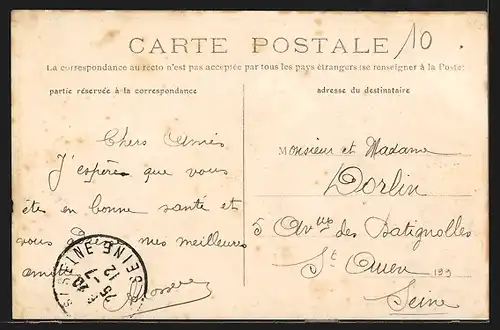 CARTE POSTALE
10
La correspondance au recto n'est pas acceptée par tous les pays étrangers (se renseigner à la Poste)
partie réservée à la correspondance
adresse du destinataire
Chers Amis
J'espère que vous
êtes en bonne santé et
vous envoie mes meilleures
Monsieur et Madame
Dorlin
5 Avnue des Batignolles
St Ouen
Seine